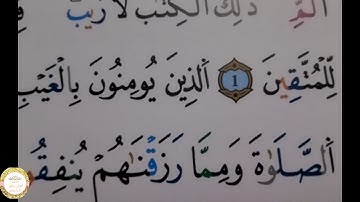 الٓمٓ ذَٰلِكَ ٱلْكِتَٰبُ لَا رَيْبَ
لِّلْمُتَّقِينَ 1 ٱلَّذِينَ يُومِنُونَ بِالْغَيْبِ
ٱلصَّلَوٰةَ وَمِمَّا رَزَقْنَٰهُمْ